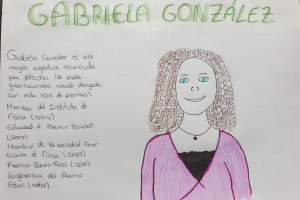 GABRIELA GONZÁLEZ
Gabriela González es una
mujer argentina reconocida
por detectar las ondas
gravitacionales siendo otorgada
con esta serie de premios:
Miembro del Instituto de
Física (2004)
Edward A. Premio
Miembro de la sociedad Ame-
ricana de Física (2007)
Premio Bruno Rossi
Conferencia del Premio